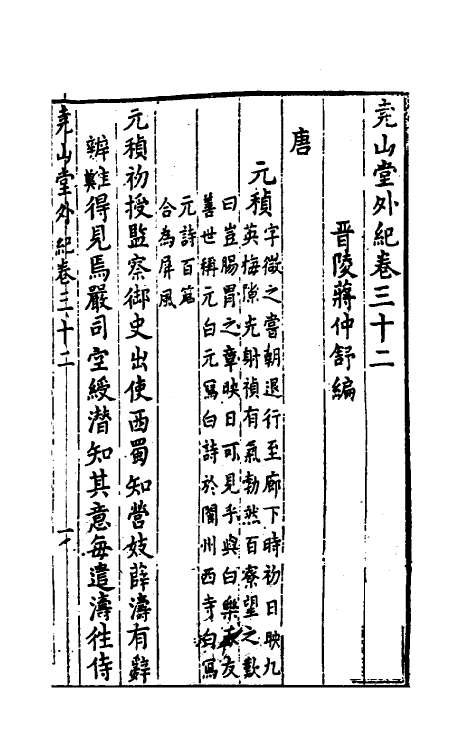 堯山堂外紀卷三十二
晉陵蔣仲舒編
唐
元稹
字微之嘗朝退行至廊下時初日映九
英梅隙光射稹有氣勃然百寮望之歎
曰豈腸胃之章映日可見乎與白樂天友
善世稱元白元寫白詩於閬州西寺白寫
元詩百篇
合為屏風
元稹初授監察御史出使西蜀知營妓薛濤有辭
辯難得見焉嚴司空綬潛知其意每遣濤往侍
堯山堂外紀卷三十二
一